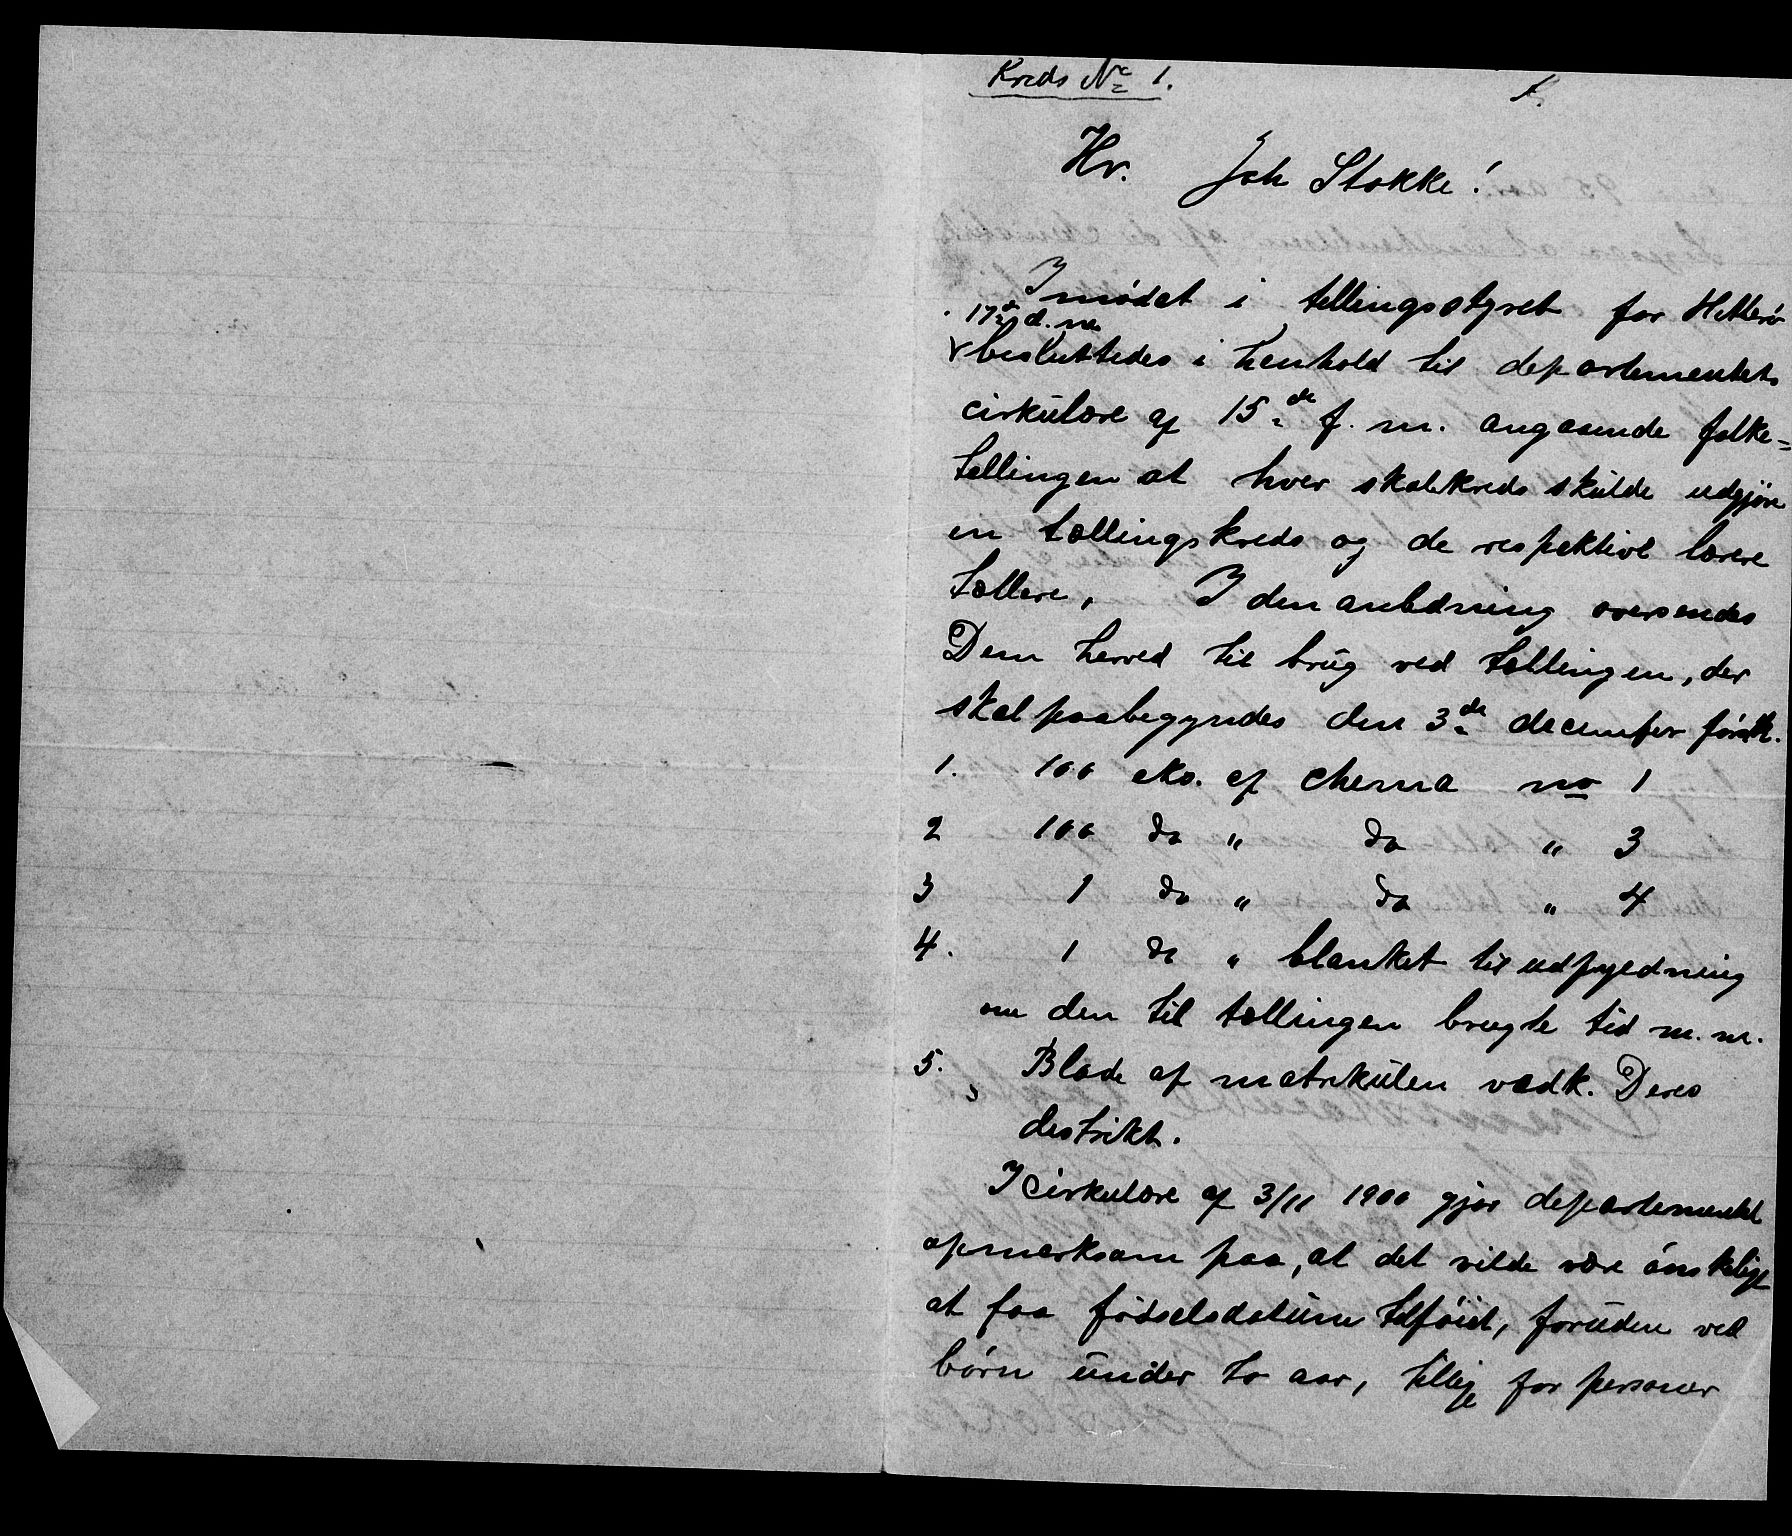 Kreds No 1.
1.
Hr. Joh Stokke!
I mødet i tellingsstyret for Hitterø
17de d. m.
besluttedes i henhold til departementets
cirkulære af 15de f. m. angaaende folke=
tellingen at hver skolekreds skulde udgjøre
en tællingskreds og de respektive lærere
tællere. I den anledning oversendes
Dem herved til brug ved tællingen, der
skal paabegyndes den 3de december førstk.
1. 100 eks. af schema no 1
2 100 do " do " 3
3 1 do " do " 4
4. 1 do " blanket til udfyldning
om den til tællingen brugte tid m. m.
5. Blade af matrikulen vedk. Deres
distrikt.
I cirkulære af 3/11 1900 gjør departementet
opmerksom paa, at det vilde være ønskeligt
at faa fødselsdatum tilføiet, foruden ved
børn under to aar, tillige for personer